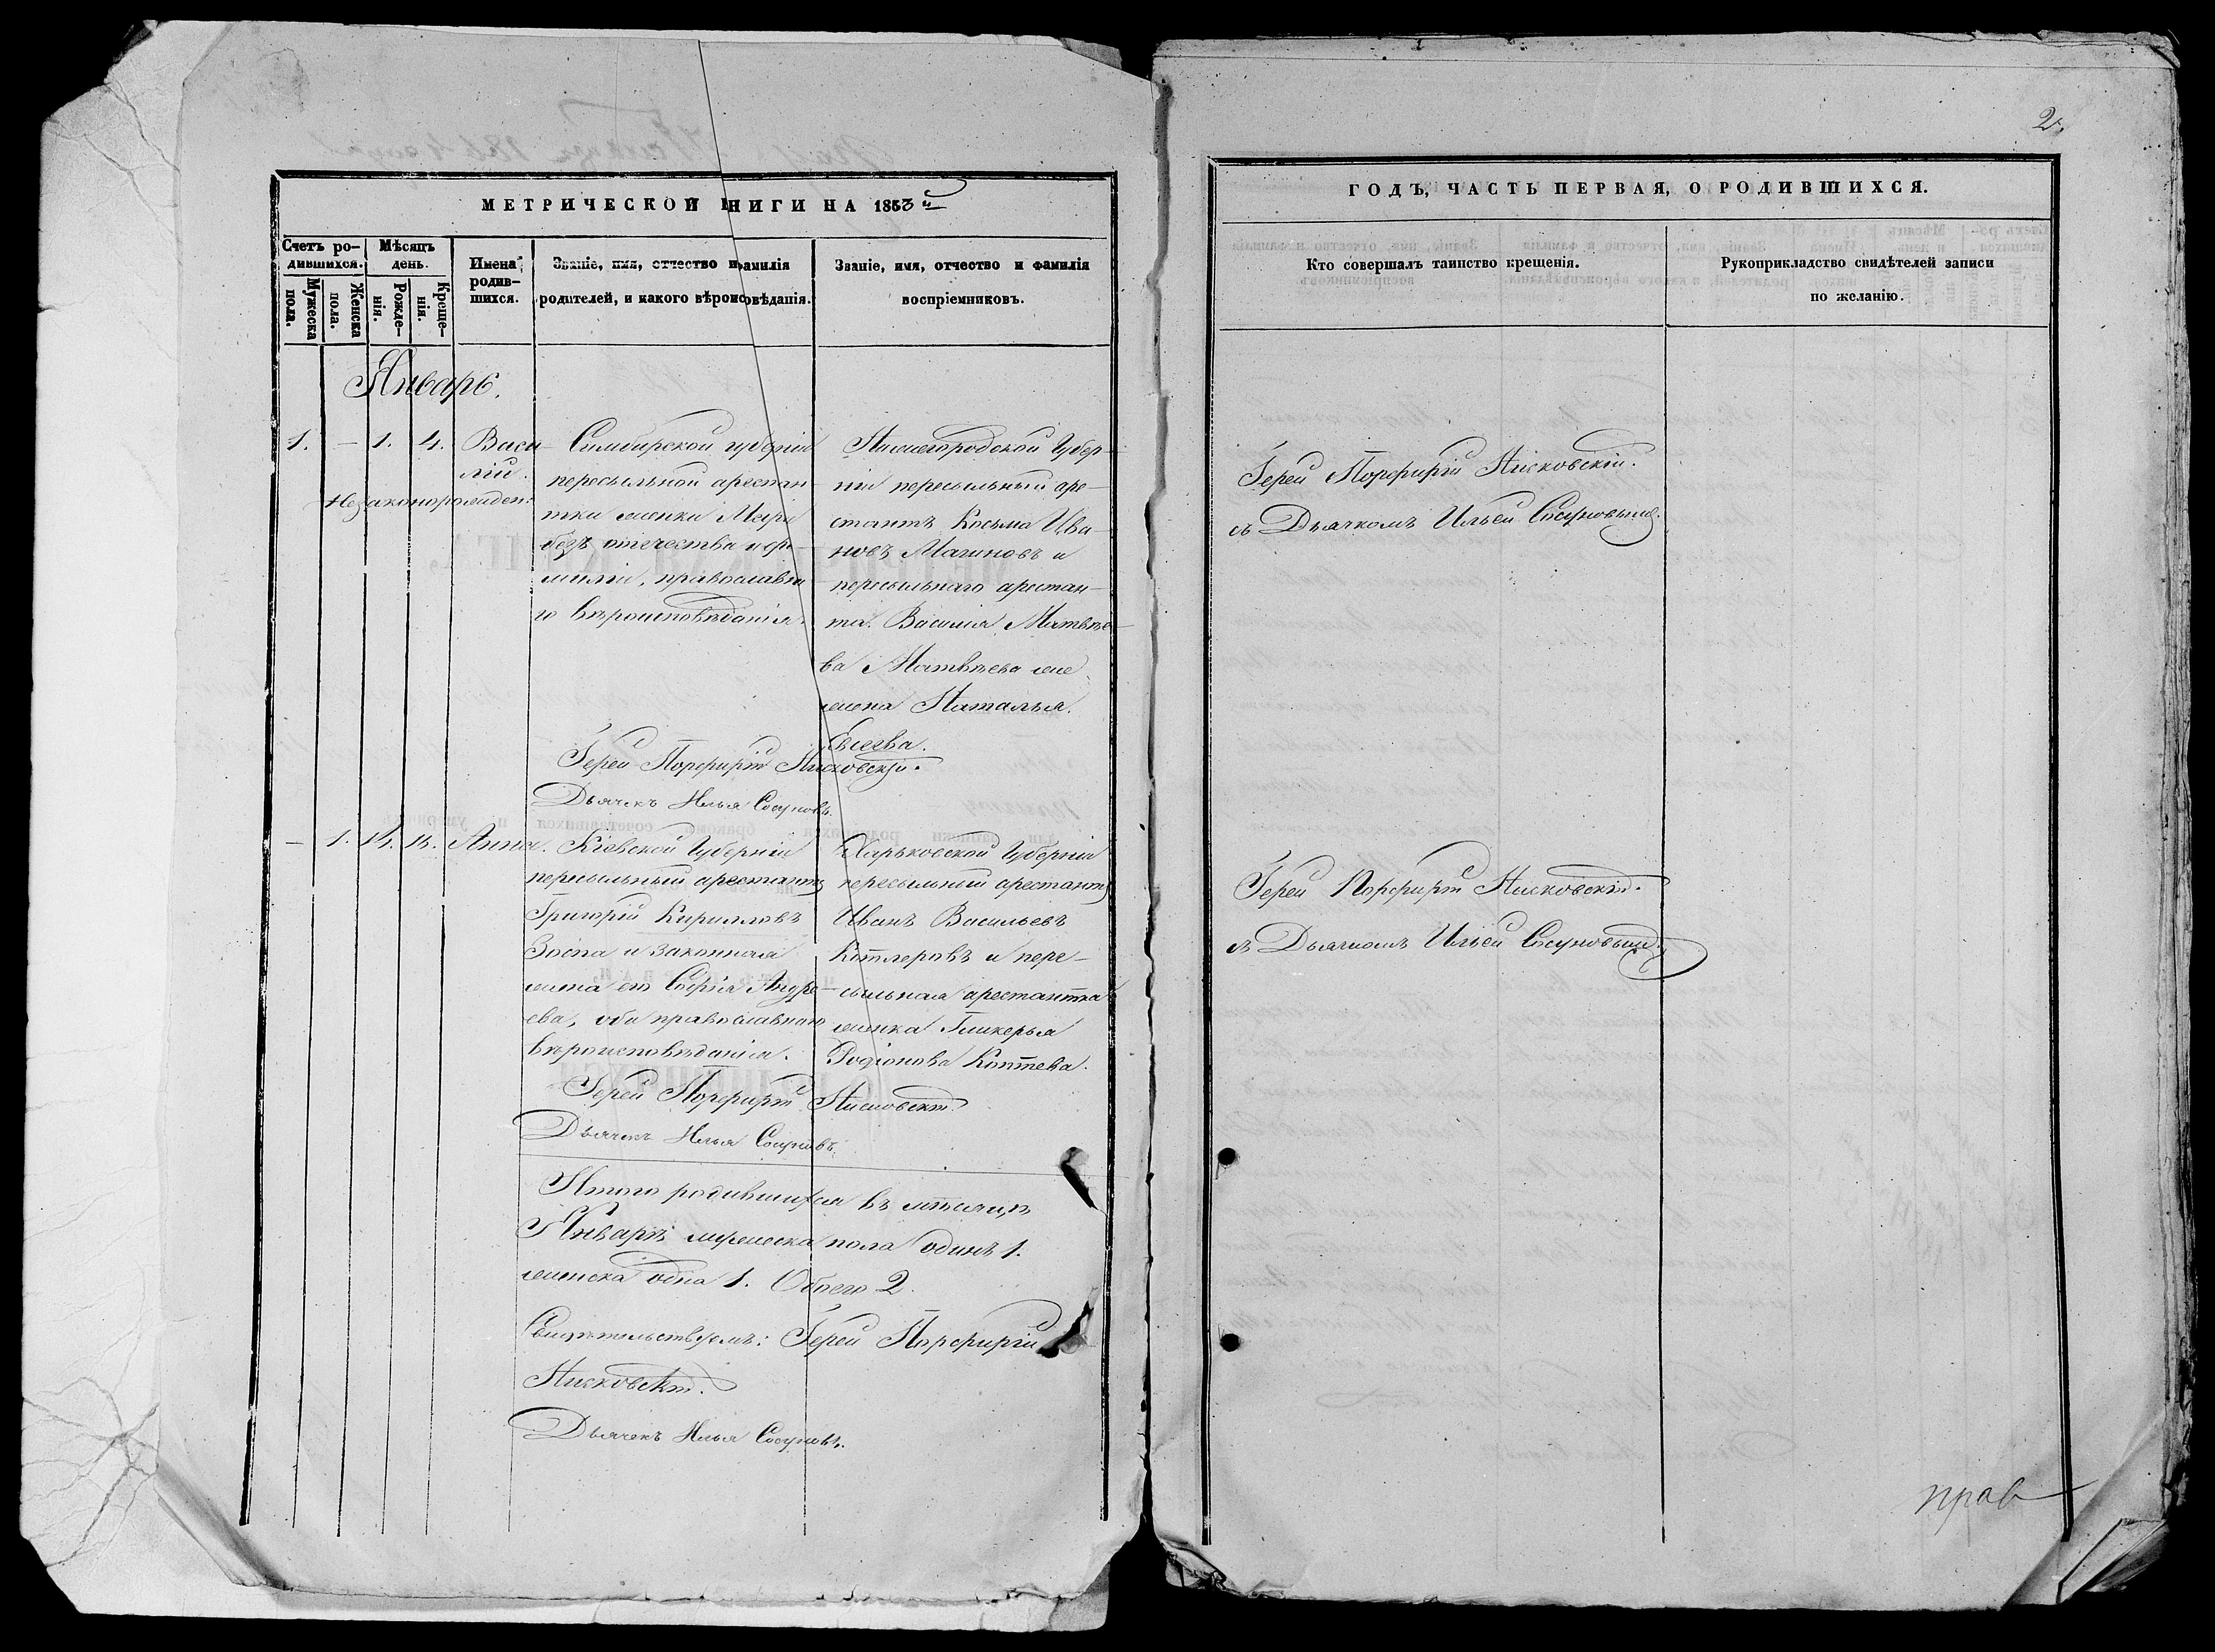 МЕТРИЧЕСКОЙ КНИГИ НА 1863й
Счетъ ро-
дившихся.
Мужеска
пола.
Женска
пола.
Мѣсяцъ
день.
Рожде-
нія.
Креще-
нія.
Имена
родив-
шихся.
Званіе, имя, отчество и фамилія
родителей, и какого вѣроисповѣданія.
Званіе, имя, отчество и фамилія
воспріемниковъ.
Январь.
1. — 1. 4. Васи-
лій.
Незаконорожден:
Симбирской губерніи
пересыльной арестан-
тки женки Марі
безъ отечества и фа-
миліи, православна-
го вѣроисповѣданія.
Нижегородской Губер-
ніи пересыльный аре-
стантъ Косьма Ива-
новъ Мачиновъ и
пересыльнаго арестан-
та Василія Матвѣе-
ва Матвѣева же
жена Наталья
Евсеева.
Іерей Порфирій Нисковскій.
Дьячекъ Илья Сосуновъ.
— 1. 14. 15. Анна.
Кіевской Губерніи
пересыльный арестантъ
Григорій Кирилловъ
Зоспа и законная
жена его Софія Андре-
ева, оба православнаго
вѣроисповѣданія.
Харьковской Губерніи
пересыльный арестантъ
Иванъ Васильевъ
Котлеровъ и пере-
сыльная арестантка
женка Гликерья
Родіонова Коптева.
Іерей Порфирій Нисковскій
Дьячекъ Илья Сосуновъ.
Итого родившихся въ мѣсяцѣ
Январѣ мужеска пола одинъ 1.
женска одна 1. Обоего 2.
Свидѣтельствуемъ: Іерей Порфирій
Нисковскій.
Дьячекъ Илья Сосуновъ.
2.
ГОДЪ, ЧАСТЬ ПЕРВАЯ, О РОДИВШИХСЯ.
Кто совершалъ таинство крещенія.
Рукоприкладство свидѣтелей записи
по желанію.
Іерей Порфирій Нисковскій.
съ Дьячкомъ Ильей Сосуновымъ.
Іерей Порфирій Нисковскій.
съ Дьячкомъ Ильей Сосуновымъ.
прав